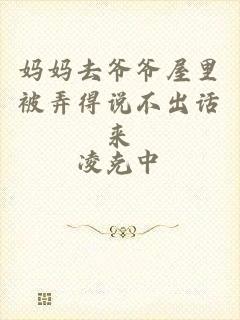 妈妈去爷爷屋里
被弄得说不出话
来
凌克中